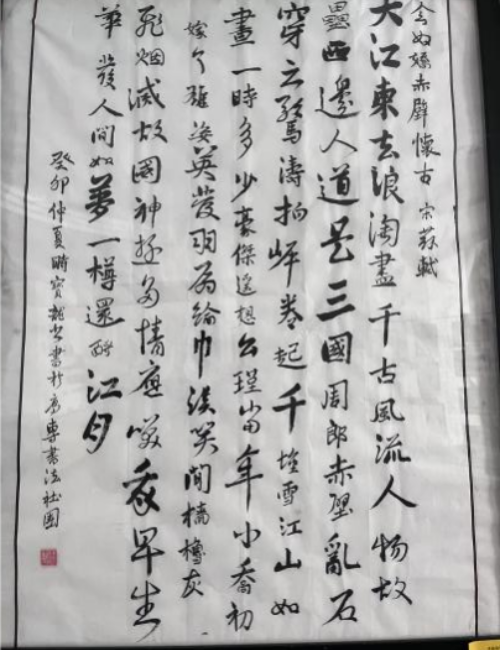 念奴娇赤壁懷古 宋苏軾
大江東去浪淘盡千古風流人物故
壘西邊人道是三國周郎赤壁亂石
穿云驚濤拍岸卷起千堆雪江山如
畫一時多少豪傑遥想公瑾當年小喬初
嫁了雄姿英發羽扇綸巾談笑間檣櫓灰
飛烟滅故國神遊多情應笑我早生
華髮人間如夢一樽還酹江月
癸卯仲夏時賀書於專書法社團